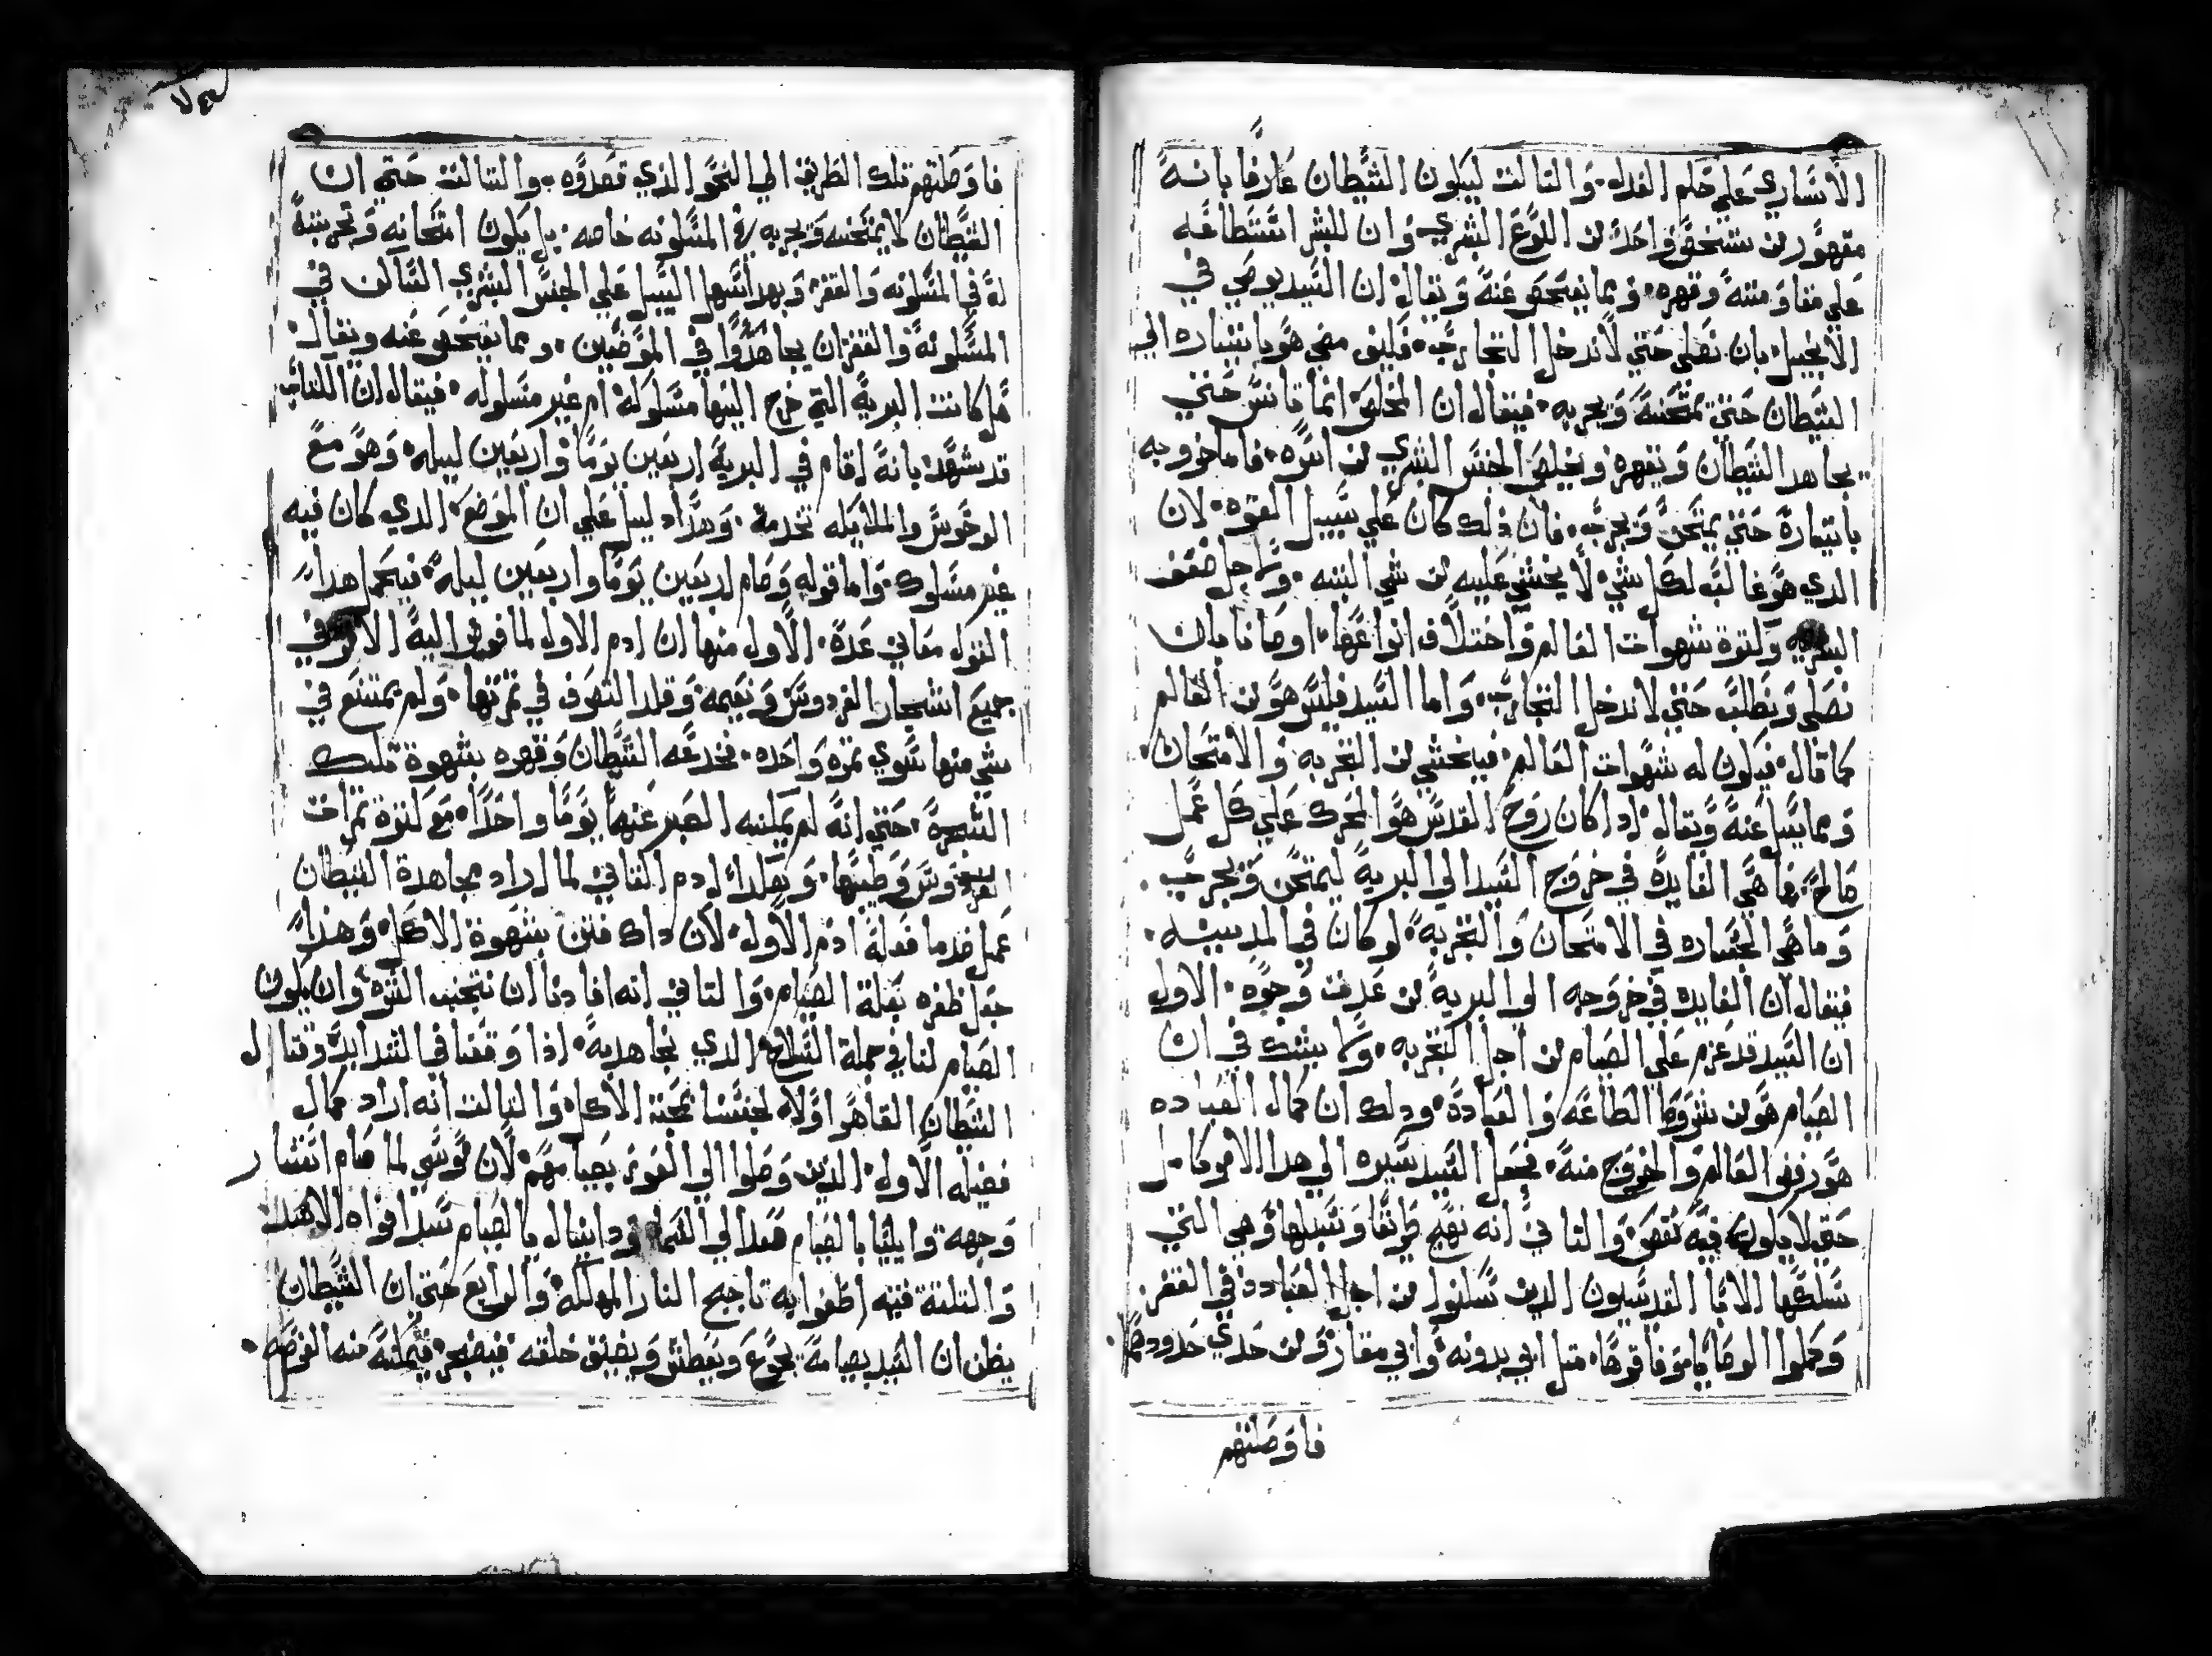 الانساري علي حلم العدل. والتالت ليكون الشيطان عارفا بانه
مقهور من شخص واحد من النوع البشري وان للبشر استطاعه
علي مقاومته وقهره. ومما يفحص عنه ويقال ان السيد يوصي في
الانجيل. بان نصلي حتي لا ندخل التجارب. فكيف مضي هو باختياره الي
الشيطان حتي يمتحنه ويجربه. فيقال ان المخلص انما تانس حتي
يجاهد الشيطان ويقهره ويخلص الجنس البشري من اسره. فاما خروجه
باختياره حتي يمتحن ويجرب. فان ذلك كان علي سبيل القوه. لان
الدي هو غالب لكل شي. لا يخشي عليه من شي البته. ولاجل ضعف
البشريه ولكترة شهوات العالم واختلاف انواعها. اوصانا بان
نصلي ونطلب حتي لا ندخل التجارب. واما السيد فليس هو من العالم
كما قال. فيكون له شهوات العالم. فيخشي من التجربه والامتحان.
ومما يسل عنه ويقال. ادا كان روح القدس هو المحرك علي كل عمل
صالح. فما هي الفايدة في خروج السيد الي البرية ليمتحن ويجرب.
وما هي الخساره في الامتحان والتجربه. لو كان في المدينه.
فيقال ان الفايده في خروجه الي البرية من عدت وجوه. الاول
ان السيد قد عزم علي الصيام من اجل التجربه. ولا يشك في ان
الصيام هو من شروط الطاعه والعبادة. ودلك ان كمال العباده
هو رفض العالم والخروج منه. فجعل السيد سيره الي هدا الامر كامل
حتي لا يكون فيه نقص. والتاني انه نهج طريقا وسبيلها وهي التي
سلكها الابا القديسون الدين سكنوا من اجل العبادة في القفر.
وكملوا الوصايا وفاقوها. متل ابي بدونه. وابي مقار ومن حدي حدودهما
فاوصلتهم
فاوصلتهم تلك الطريق الي النحو الذي قصدوه. والتالت حتي ان
الشيطان لا يمتحنه ويجربه في المسكونه خاصه. بل يكون امتحانه وتجربته
له في المسكونه والقفر. وبهدا تسهل السبل علي الجنس البشري الساكن في
المسكونة والقفر ان يجاهدوا في الموضعين. ومما يفحص عنه ويقال.
هل كانت البرية التي خرج اليها مسلوكة ام غير مسلوكه. فيقال ان الكتاب
قد يشهد بانه اقام في البرية اربعين يوما واربعين ليله. وهو مع
الوحوش والملايكه تخدمه. وهدا دليل علي ان الموضع الدي كان فيه
غير مسلوك. واما قوله وصام اربعين يوما واربعين ليلة. فيحمل هدا
القول معاني عدة. الاول منها ان ادم الاول لما فوض اليه الامر في
جميع اشجار الفردوس ونعيمه وقلد التصرف في تمرتها. ولم يمتنع في
شي منها سوي تمره واحده. فخدعه الشيطان وقهره بشهوة تلك
الشجرة. حتي انه لم يمكنه الصبر عنها يوما واحدا. مع كترة تمرات
الفردوس وطيبها. وهكدا ادم التاني لما اراد مجاهدة الشيطان
عمل ضد ما فعله ادم الاول. لان داك فتن بشهوة الاكل. وهدا
جعل ظفره بقلة الصيام. والتاني انه افادنا ان نتجنب الشره وان يكون
الصيام لنا في جملة السلاح الدي نجاهد به. اذا وقفنا في الشدايد وقتال
الشيطان القاهر اولا لجنسنا بمحبة الاكل. والتالت انه اراد كمال
فضيله الاول. الذين وصلوا الي الفوز بصيامهم. لان موسي لما صام استنار
وجهه. وايليا بالصيام صعد الي السما. ودانيال بالصيام سد افواه الاسد
والتلتة فتيه اطفوا به تاجيج النار المهلكه. والرابع حتي ان الشيطان
يظن ان السيد بصيامه يجوع ويعطش ويضيق خلقه فيضجر. فيمكنه منه الفرصه.